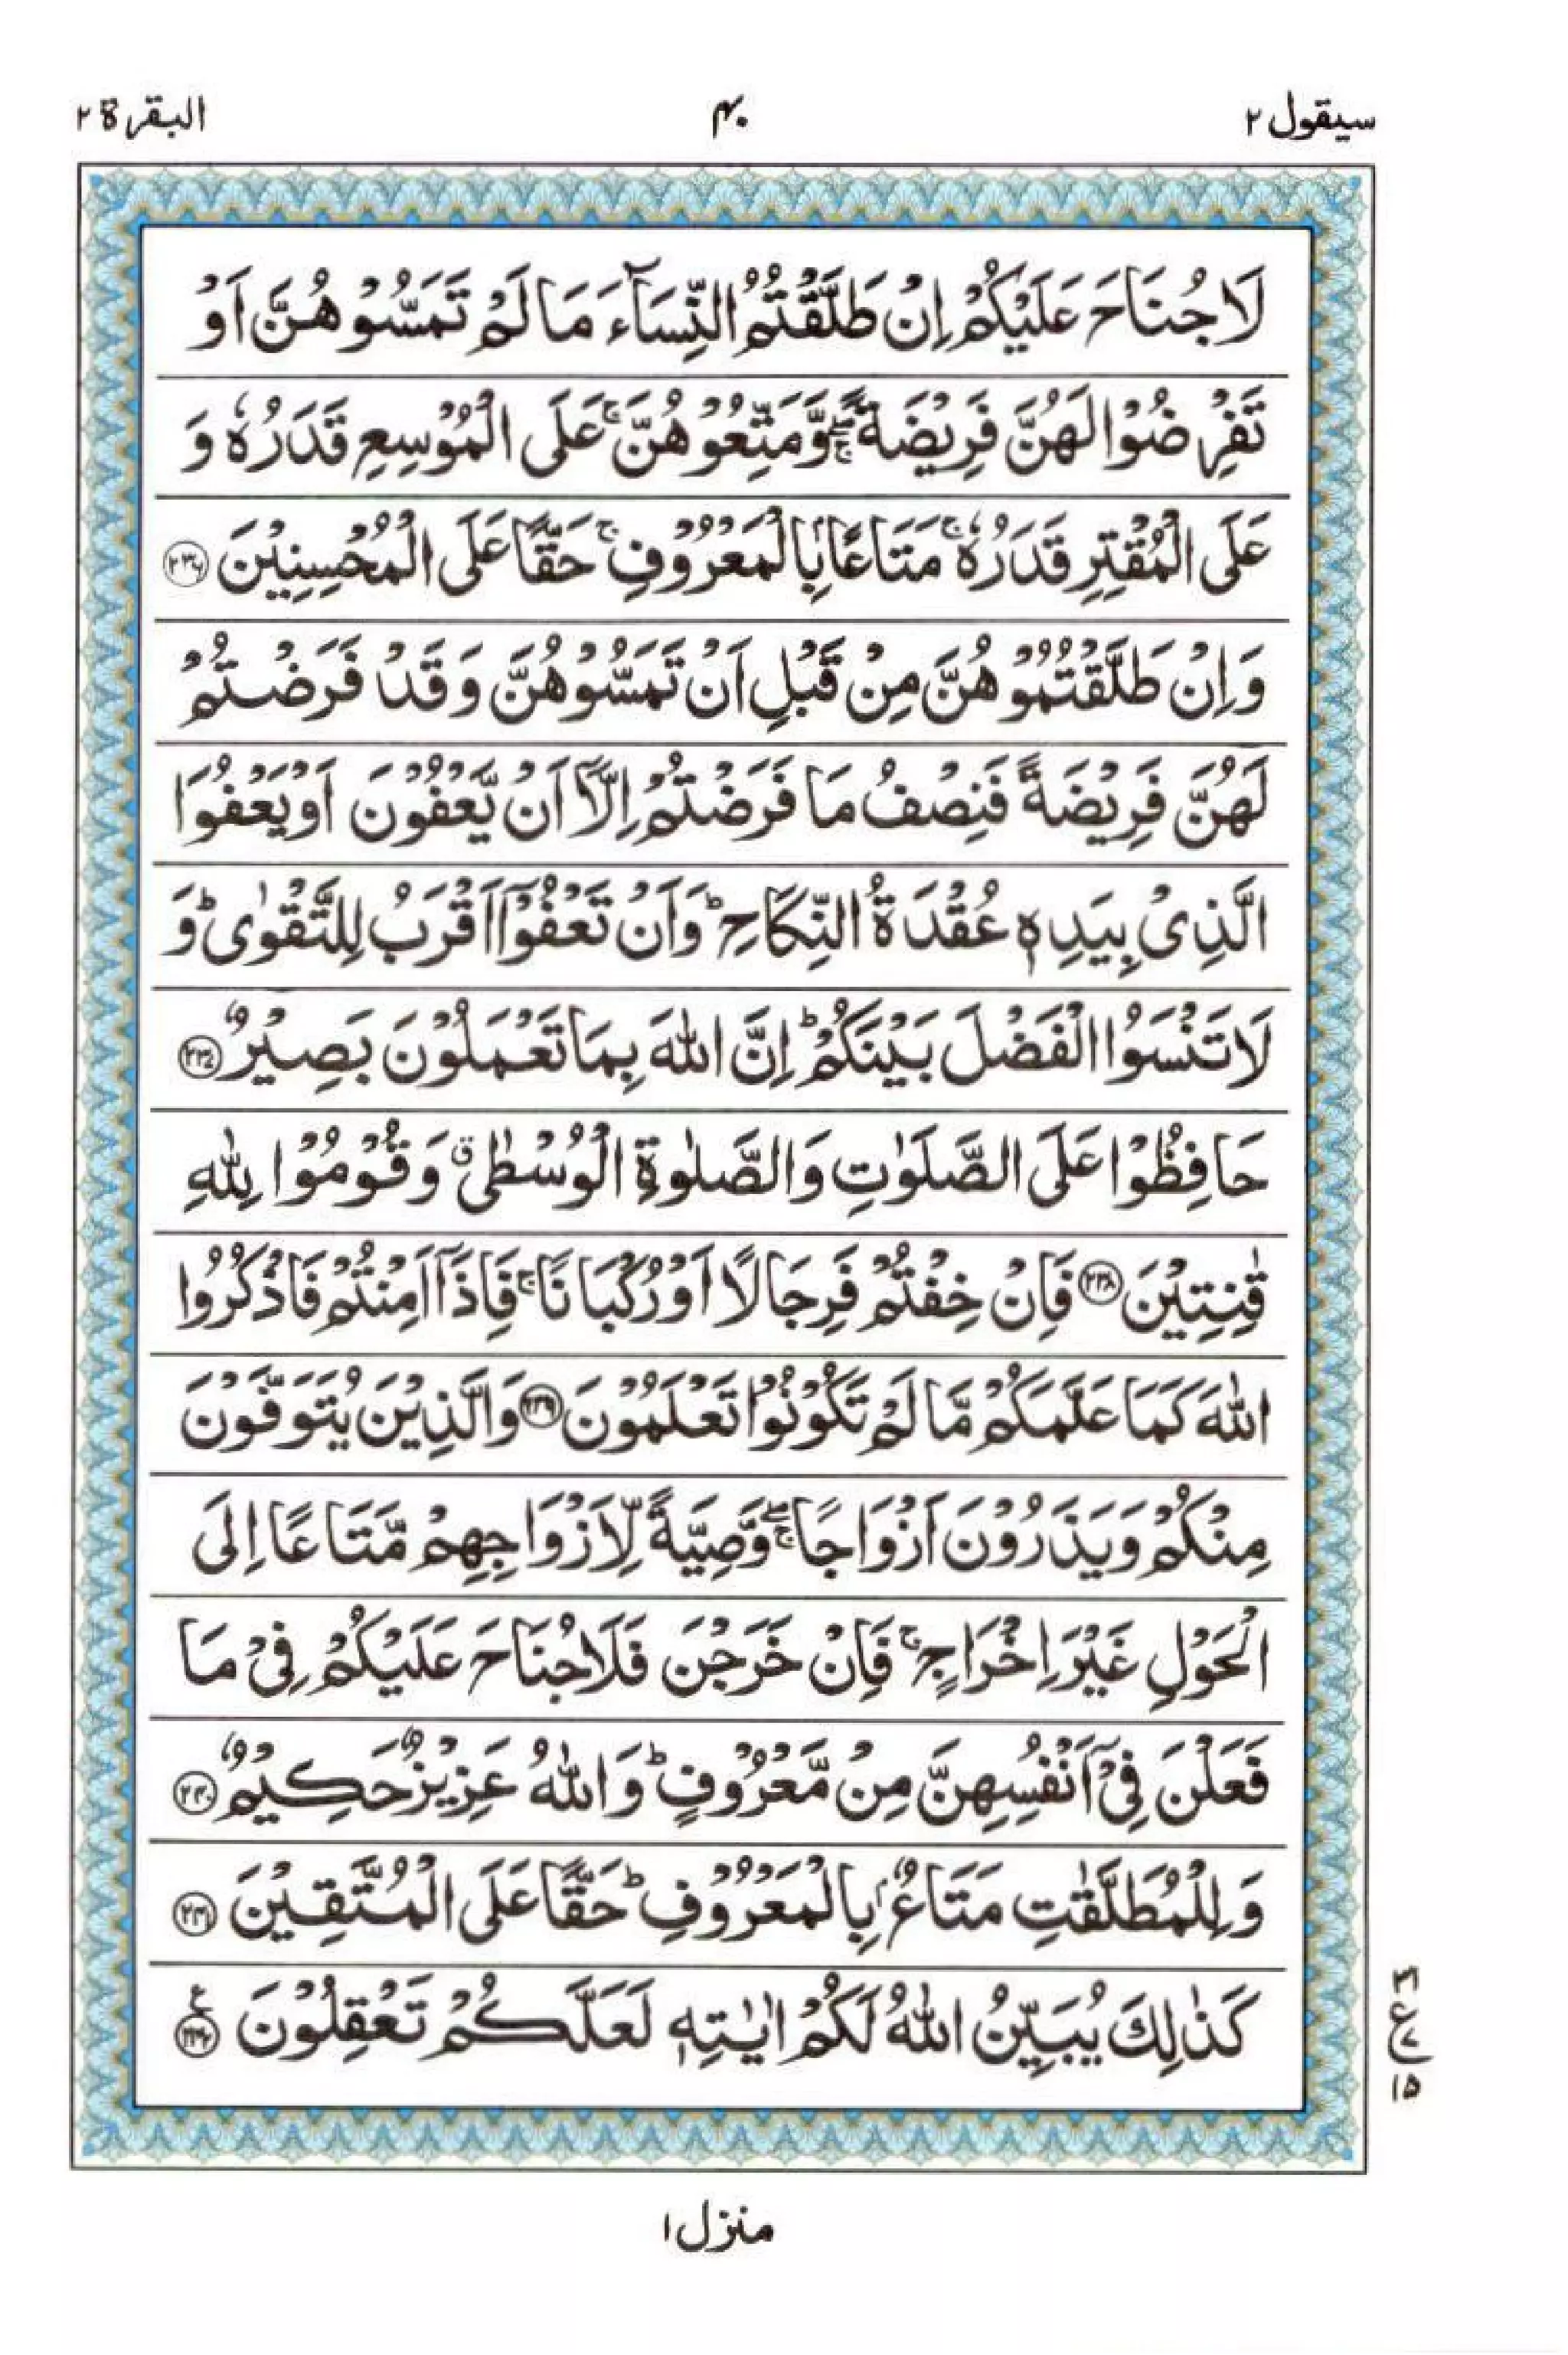 سيقول ٢
٤٠
البقرة ٢
لَا جُنَاحَ عَلَيْكُمْ اِنْ طَلَّقْتُمُ النِّسَآءَ مَا لَمْ تَمَسُّوْهُنَّ اَوْ
تَفْرِضُوْا لَهُنَّ فَرِيْضَةً ۖۚ وَّمَتِّعُوْهُنَّ ۚ عَلَى الْمُوْسِعِ قَدَرُهٗ وَ
عَلَى الْمُقْتِرِ قَدَرُهٗ ۚ مَتَاعًۢا بِالْمَعْرُوْفِ ۚ حَقًّا عَلَى الْمُحْسِنِيْنَ ۝٢٣٦
وَاِنْ طَلَّقْتُمُوْهُنَّ مِنْ قَبْلِ اَنْ تَمَسُّوْهُنَّ وَقَدْ فَرَضْتُمْ
لَهُنَّ فَرِيْضَةً فَنِصْفُ مَا فَرَضْتُمْ اِلَّاۤ اَنْ يَّعْفُوْنَ اَوْ يَعْفُوَا
الَّذِىْ بِيَدِهٖ عُقْدَةُ النِّكَاحِ ؕ وَاَنْ تَعْفُوْۤا اَقْرَبُ لِلتَّقْوٰى ؕ وَ
لَا تَنْسَوُا الْفَضْلَ بَيْنَكُمْ ؕ اِنَّ اللّٰهَ بِمَا تَعْمَلُوْنَ بَصِيْرٌ ۝٢٣٧
حَافِظُوْا عَلَى الصَّلَوٰتِ وَالصَّلٰوةِ الْوُسْطٰى ۗ وَقُوْمُوْا لِلّٰهِ
قٰنِتِيْنَ ۝٢٣٨ فَاِنْ خِفْتُمْ فَرِجَالًا اَوْ رُكْبَانًا ۚ فَاِذَاۤ اَمِنْتُمْ فَاذْكُرُوا
اللّٰهَ كَمَا عَلَّمَكُمْ مَّا لَمْ تَكُوْنُوْا تَعْلَمُوْنَ ۝٢٣٩ وَالَّذِيْنَ يُتَوَفَّوْنَ
مِنْكُمْ وَيَذَرُوْنَ اَزْوَاجًا ۖۚ وَّصِيَّةً لِّاَزْوَاجِهِمْ مَّتَاعًا اِلَى
الْحَوْلِ غَيْرَ اِخْرَاجٍ ۚ فَاِنْ خَرَجْنَ فَلَا جُنَاحَ عَلَيْكُمْ فِىْ مَا
فَعَلْنَ فِىْۤ اَنْفُسِهِنَّ مِنْ مَّعْرُوْفٍ ؕ وَاللّٰهُ عَزِيْزٌ حَكِيْمٌ ۝٢٤٠
وَلِلْمُطَلَّقٰتِ مَتَاعٌۢ بِالْمَعْرُوْفِ ؕ حَقًّا عَلَى الْمُتَّقِيْنَ ۝٢٤١
كَذٰلِكَ يُبَيِّنُ اللّٰهُ لَكُمْ اٰيٰتِهٖ لَعَلَّكُمْ تَعْقِلُوْنَ ۝٢٤٢ ع
٣١
ع ٧
١٥
منزل ١